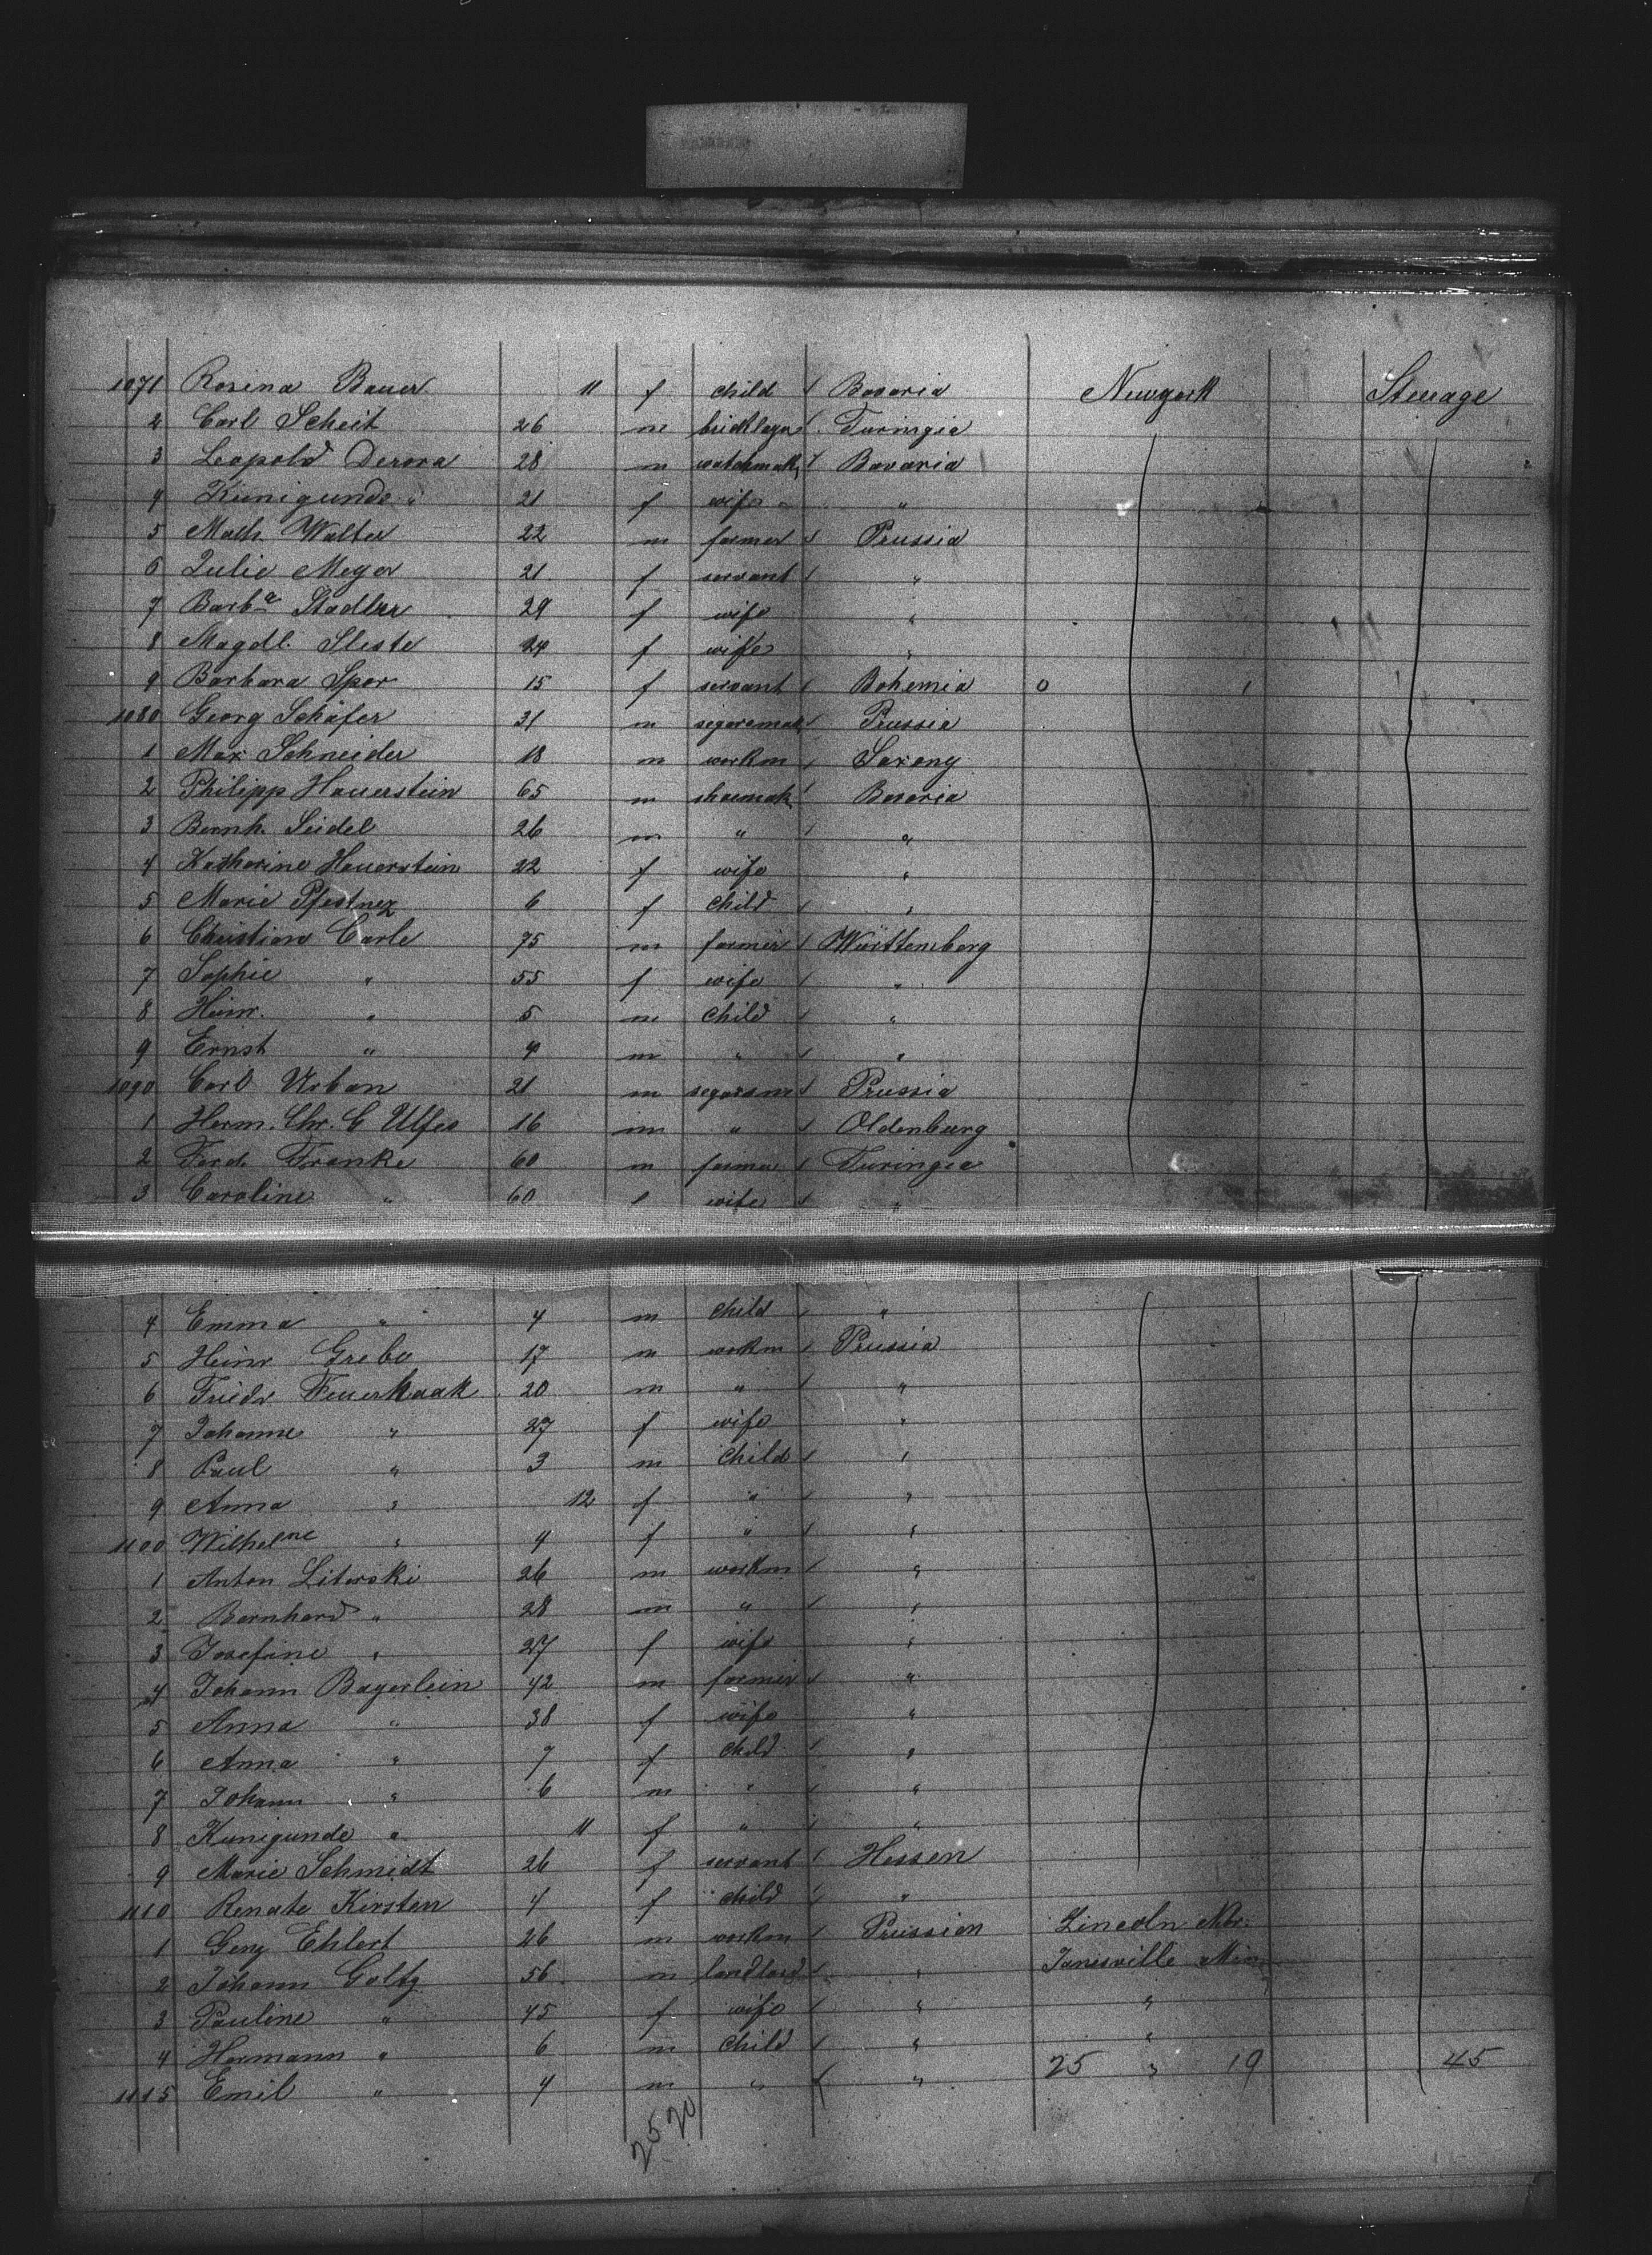 1071 Rosina Bauer 11 f child / Bavaria Newyork Steerage
2 Carl Scheit 26 m bricklayer / Turingia
3 Leopold Derora 28 m watchmak / Bavaria
4 Kunigunde " 21 f wife "
5 Math. Walter 22 m farmer / Prussia
6 Julie Meyer 21 f servant / "
7 Barba Stadler 29 f wife "
8 Magdl. Sleste 24 f wife "
9 Barbara Spor 15 f servant / Bohemia 0 1
1080 Georg Schäfer 31 m segaremak / Prussia
1 Max Schneider 18 m workm / Saxony
2 Philipp Hauerstein 65 m shoemak / Bavaria
3 Bernh. Seidel 26 m " / "
4 Katharine Hauerstein 22 f wife "
5 Marie 6 f child / "
6 Christian Carle 75 m farmer / Württemberg
7 Sophie " 55 f wife / "
8 Heinr. " 5 m child / "
9 Ernst " 4 m " / "
1090 Carl Urban 21 m segarsm / Prussia
1 Herm. Chr. C Ulfes 16 m " / Oldenburg
2 Ferd. Franke 60 m farmer / Turingia
3 Caroline " 60 f wife / "
4 Emma " 4 m child / "
5 Heinr Grebe 17 m workm / Prussia
6 Friedr Feuerhaak 20 m " / "
7 Johanne " 27 f wife "
8 Paul " 3 m child / "
9 Anna " 12 f " / "
1100 Wilhelne " 4 f " / "
1 Anton Literski 26 m workm / "
2 Bernhard " 28 m " / "
3 Josefine " 27 f wife "
4 Johann Bayerlein 42 m farmer / "
5 Anna " 38 f wife "
6 Anna " 7 f child / "
7 Johann " 6 m " / "
8 Kunigunde " 11 f " / "
9 Marie Schmidt 26 f servant / Hessen
1110 Renate Kirsten 4 f child / "
1 Ehlert 26 m workm / Prussian Lincoln Nbr.
2 Johann Goltz 56 m landlord / " Janesville Min
3 Pauline " 45 f wife / " "
4 Hermann " 6 m child / " "
1115 Emil " 4 m " / " 25 " 19 45
25 20